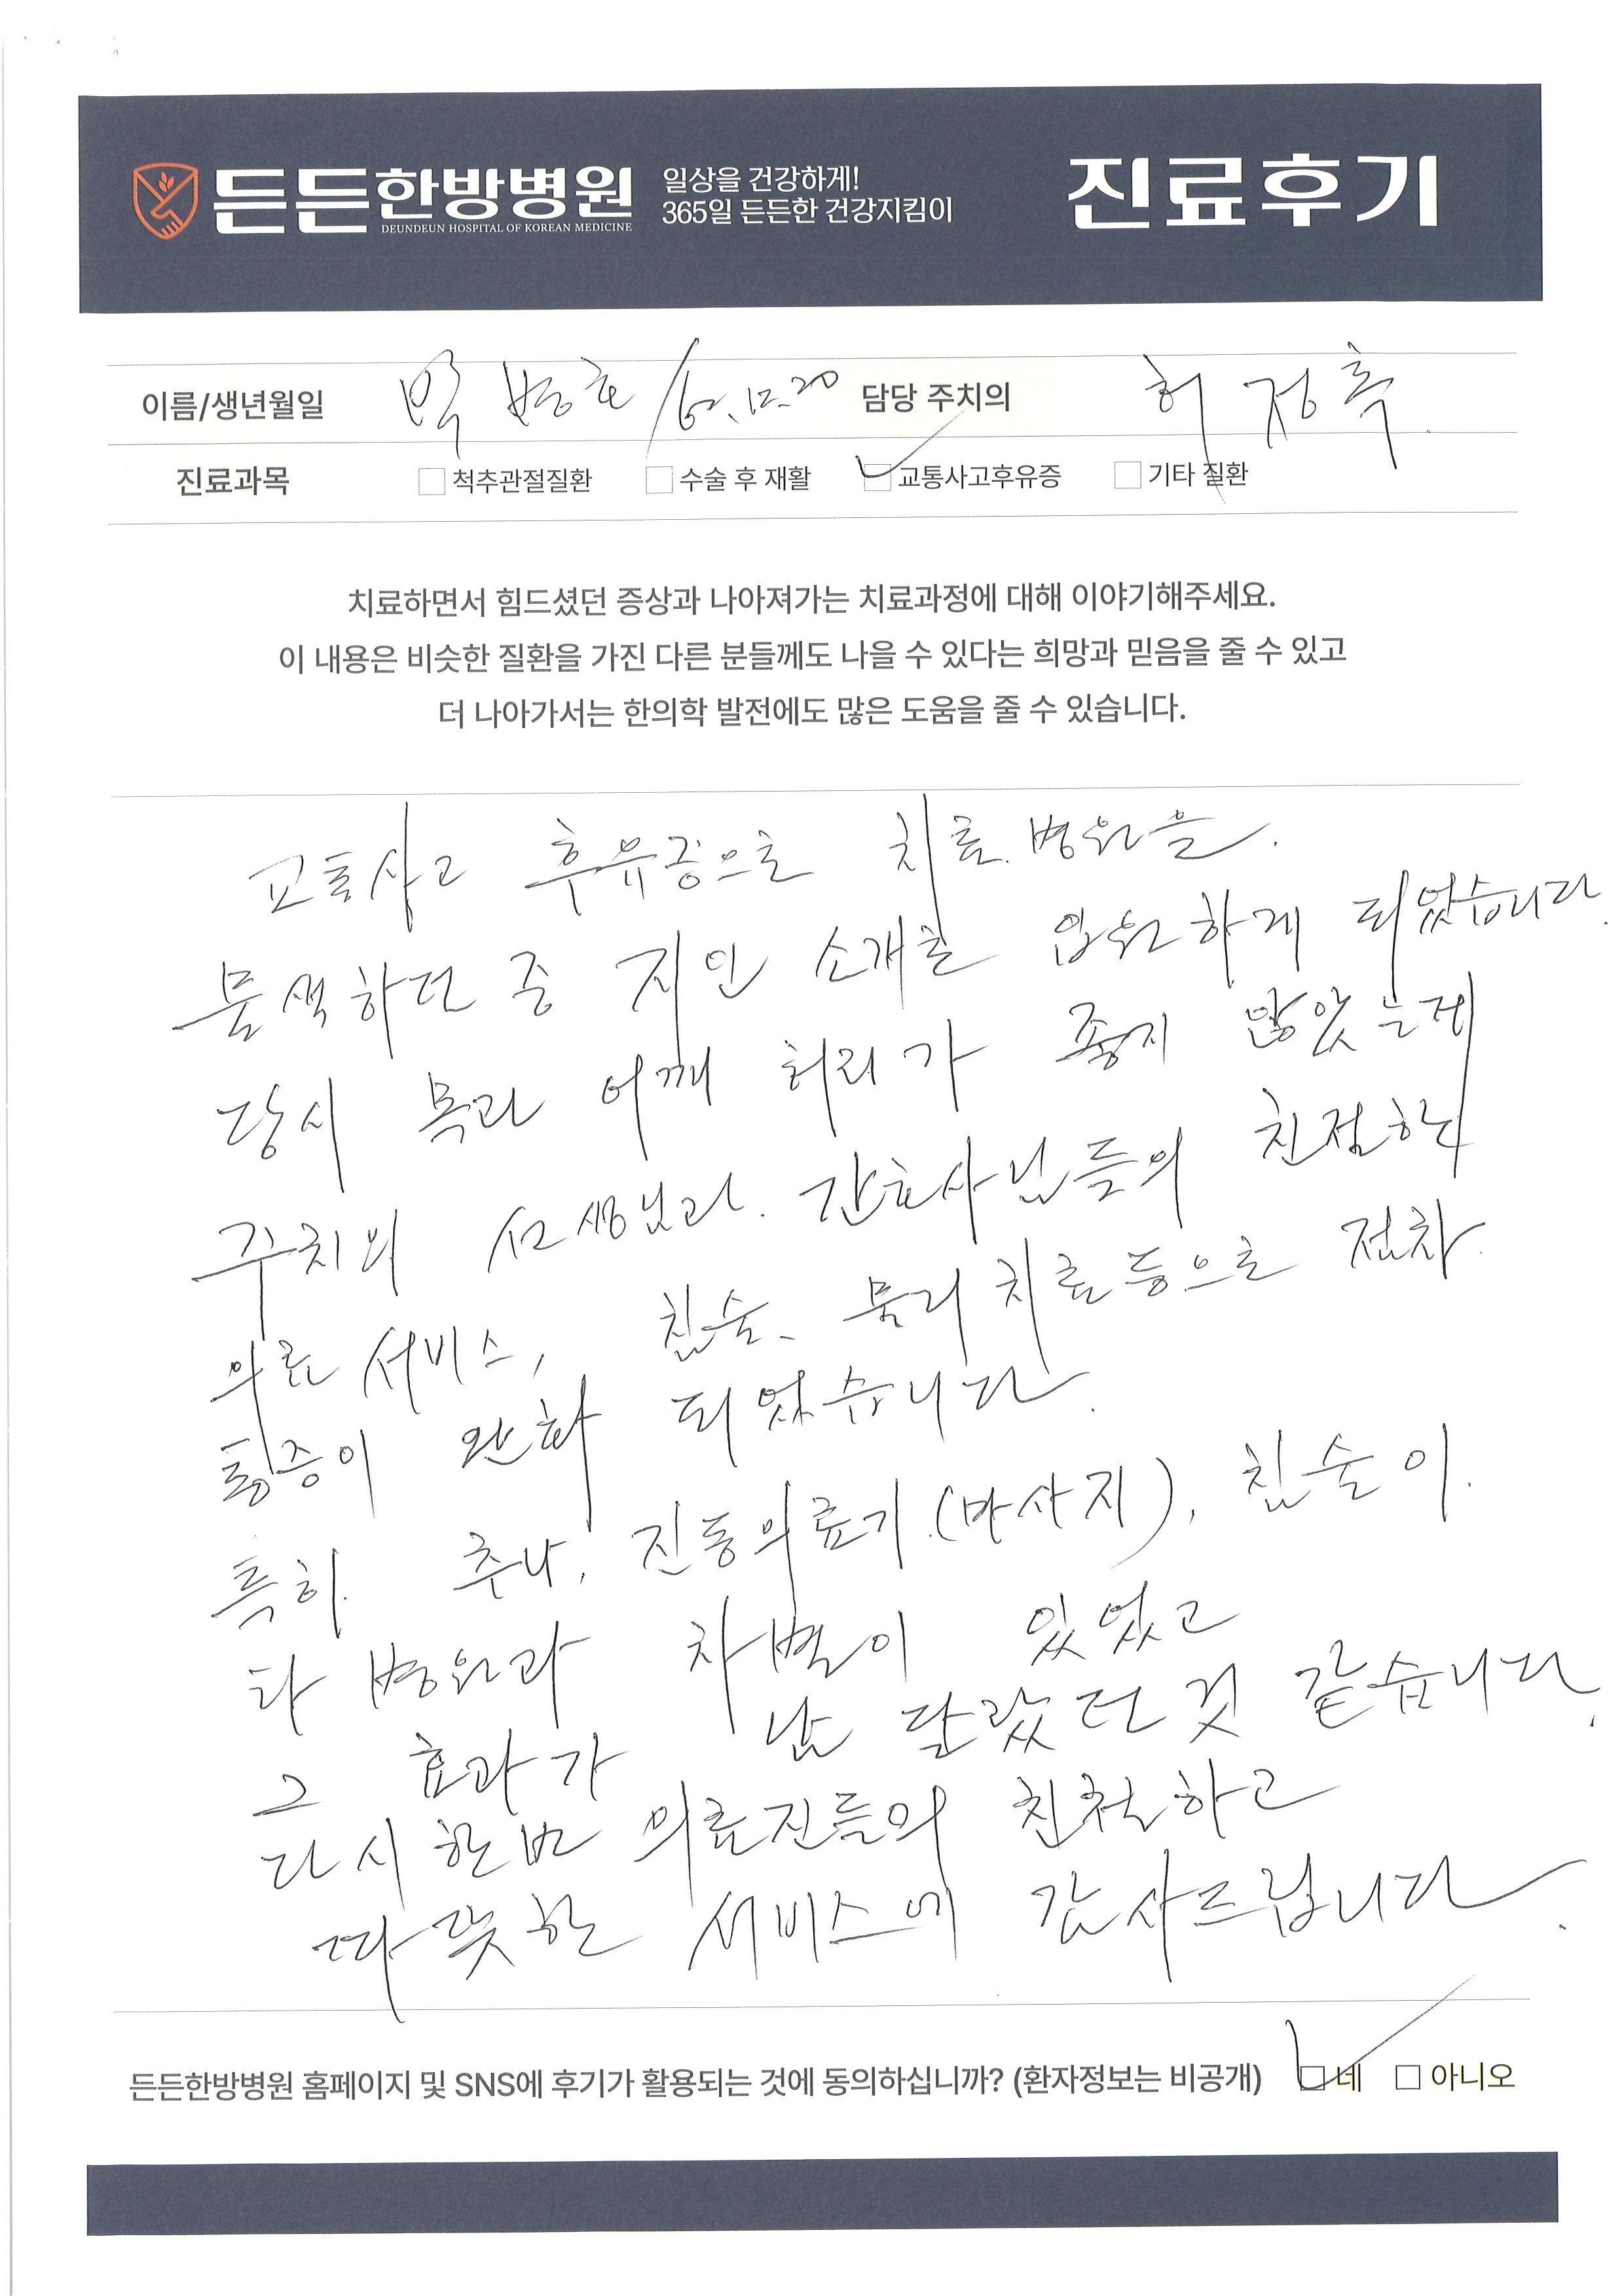 든든한방병원
DEUNDEUN HOSPITAL OF KOREAN MEDICINE
일상을 건강하게!
365일 든든한 건강지킴이
진료후기
이름/생년월일 박병호 /62.12.20 담당 주치의 허정욱
진료과목 척추관절질환 수술 후 재활 교통사고후유증 기타 질환
치료하면서 힘드셨던 증상과 나아져가는 치료과정에 대해 이야기해주세요.
이 내용은 비슷한 질환을 가진 다른 분들께도 나을 수 있다는 희망과 믿음을 줄 수 있고
더 나아가서는 한의학 발전에도 많은 도움을 줄 수 있습니다.
교통사고 후유증으로 치료 병원을.
물색하던 중 지인 소개로 입원하게 되었습니다.
당시 목과 어깨 허리가 좋지 않았는데
주치의 선생님과. 간호사님들의 친절한
의료 서비스, 침술, 물리치료등으로 점차
통증이 완화 되었습니다.
특히. 추나, 진동의료기(마사지), 침술이.
타 병원과 차별이 있었고
그 효과가 남 달랐던 것 같습니다.
다시한번 의료진들의 친절하고
따뜻한 서비스에 감사드립니다.
든든한방병원 홈페이지 및 SNS에 후기가 활용되는 것에 동의하십니까? (환자정보는 비공개) 네 아니오